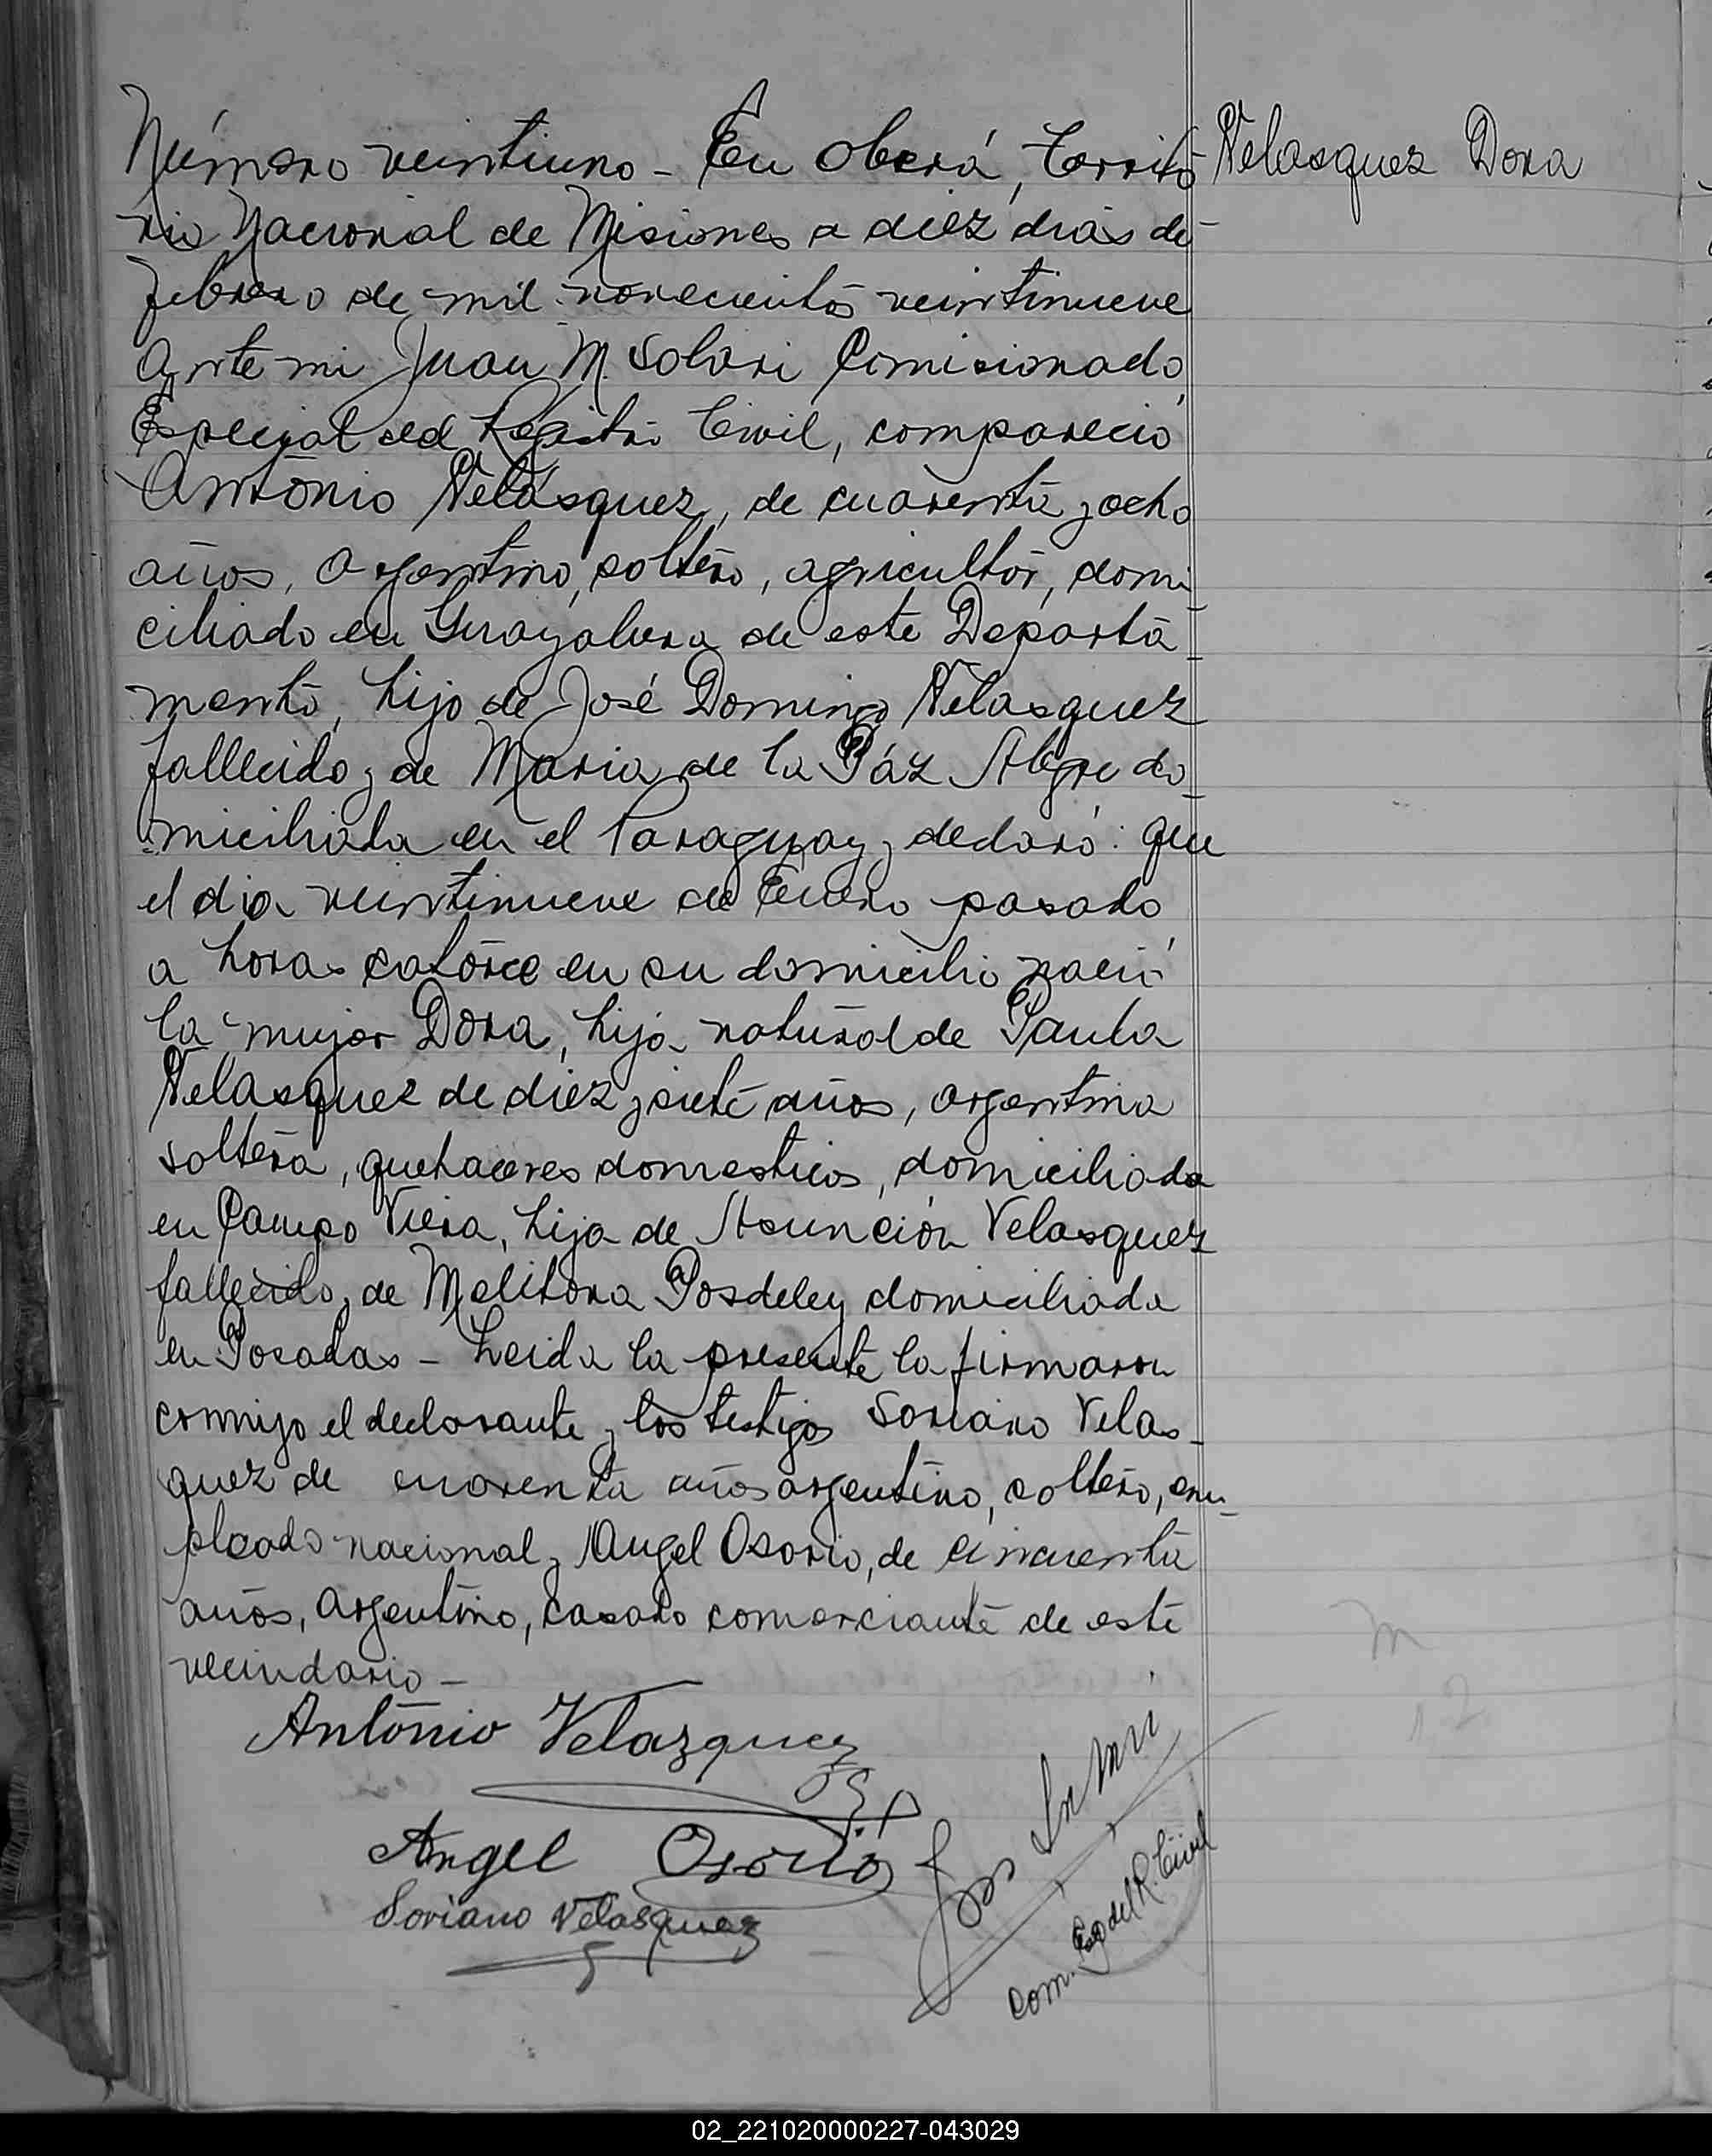 Número veintiuno - En Oberá, Territo- Velasquez Dora
rio Nacional de Misiones a diez dias de
febrero de mil novecientos veintinueve
Ante mi Juan M. Solari Comisionado
Especial del Registro Civil, compareció
Antonio Velásquez, de cuarenta y ocho
años, argentino, soltero, agricultor, domi-
ciliado en de este Departa-
mento, hijo de José Domingo Velasquez
fallecido y de Maria de la Páz Alegre do-
miciliada en el Paraguay y declaró: que
el dia veintinueve de Enero pasado
a horas catorce en su domicilio nació
la mujer Dora, hija natural de Paula
Velasquez de diez y siete años, argentina
soltera, quehaceres domesticos, domiciliada
en Campo Viera, hija de Asunción Velasquez
fallecido y de Melitona domiciliada
en Posadas - Leida la presente la firmaron
conmigo el declarante y los testigos Soriano Velas-
quez de cuarenta años argentino, soltero, em-
pleado nacional y Angel Osorio, de cincuenta
años, argentino, casado comerciante de este
vecindario -
Antonio Velazquez
Angel Osorio
Soriano Velasquez
Com. Esp del R. Civil
m
12
02_221020000227-043029